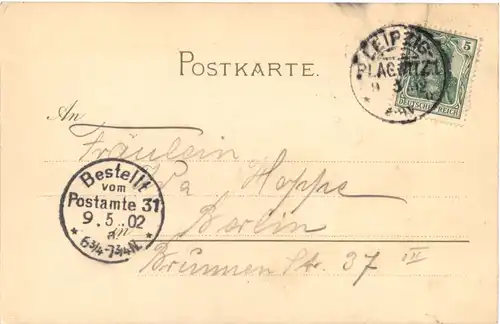 POSTKARTE.
LEIPZIG-
PLAGWITZ
5
DEUTSCHES REICH
An
Fräulein
Hoppe
Berlin
Brunnen Str. 37 III
Bestellt
vom
Postamte 31
9.5.02
6¾-7¾N.